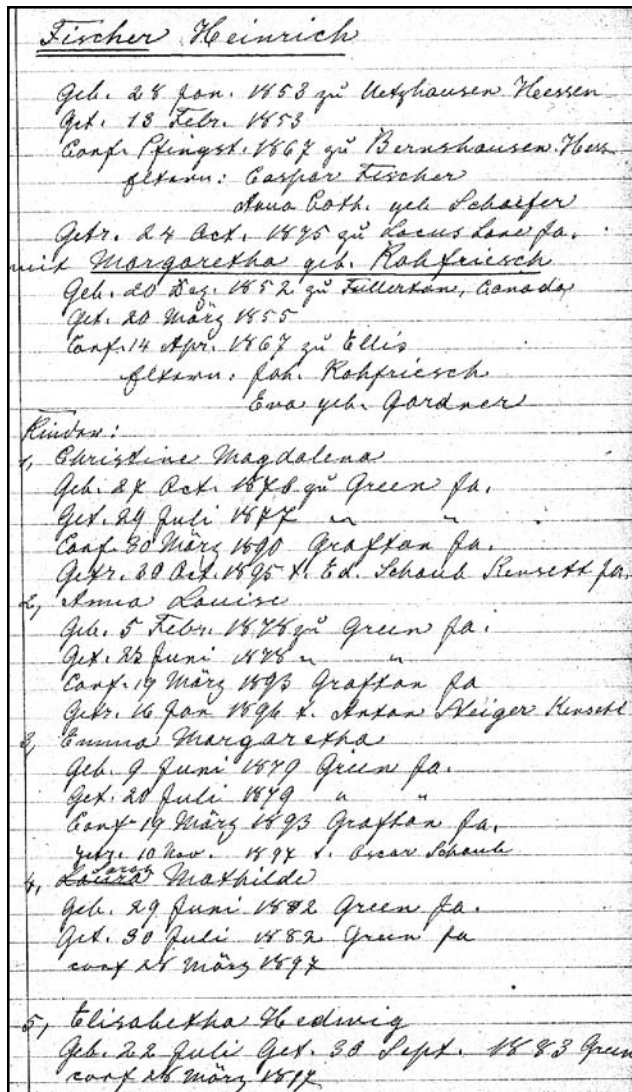 Fischer Heinrich
Geb. 28 Jan. 1853 zu Uetzhausen Hessen
Get. 13 Febr. 1853
Conf. Pfingst. 1867 zu Bernshausen Hess
Eltern: Caspar Fischer
Anna Cath. geb Schaefer
Getr. 24 Oct. 1875 zu Locus Lane Ja.
mit Margaretha geb. Rohfriesch
Geb. 20 Dez. 1852 zu Fullerton, Canada
Get. 20 März 1855
Conf. 14 Apr. 1867 zu Ellis
Eltern: Joh. Rohfriesch
Eva geb. Gardner
Kinder:
1, Christine Magdalena
Geb. 27 Oct. 1876 zu Green Ja.
Get. 29 Juli 1877 " "
Conf. 30 März 1890 Grafton Ja.
Getr. 30 Oct. 1895 t. Ed. Schaub Kensett Ja.
2, Anna Louise
Geb. 5 Febr. 1878 zu Green Ja.
Get. 23 Juni 1878 " "
Conf. 19 März 1893 Grafton Ja
Getr. 16 Jan 1896 t. Anton Steiger Kensett
3, Emma Margaretha
Geb. 9 Juni 1879 Green Ja.
Get. 20 Juli 1879 " "
Conf 19 März 1893 Grafton Ja.
Getr. 10 Nov. 1897 t. Oscar Schaub
Sarah
4, Laura Mathilde
Geb. 29 Juni 1882 Green Ja.
Get. 30 Juli 1882 Green Ja
conf 28 März 1897
5, Elisabetha Hedwig
Geb. 22 Juli Get. 30 Sept. 1883 Green
conf 28 März 1897